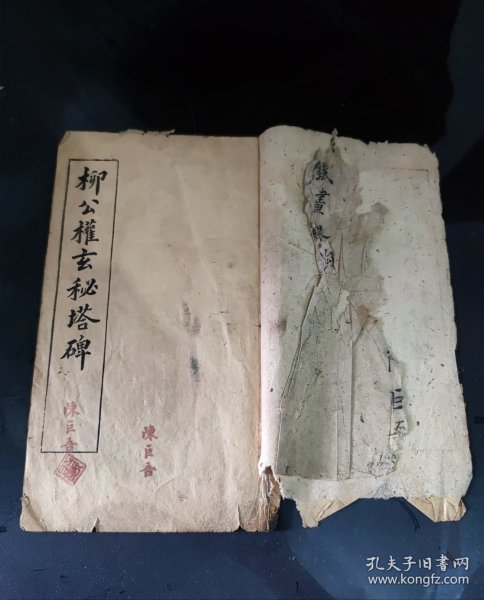 柳公權玄秘塔碑
陳巨吾
陳巨吾
畫
巨
孔夫子旧书网
www.kongfz.com